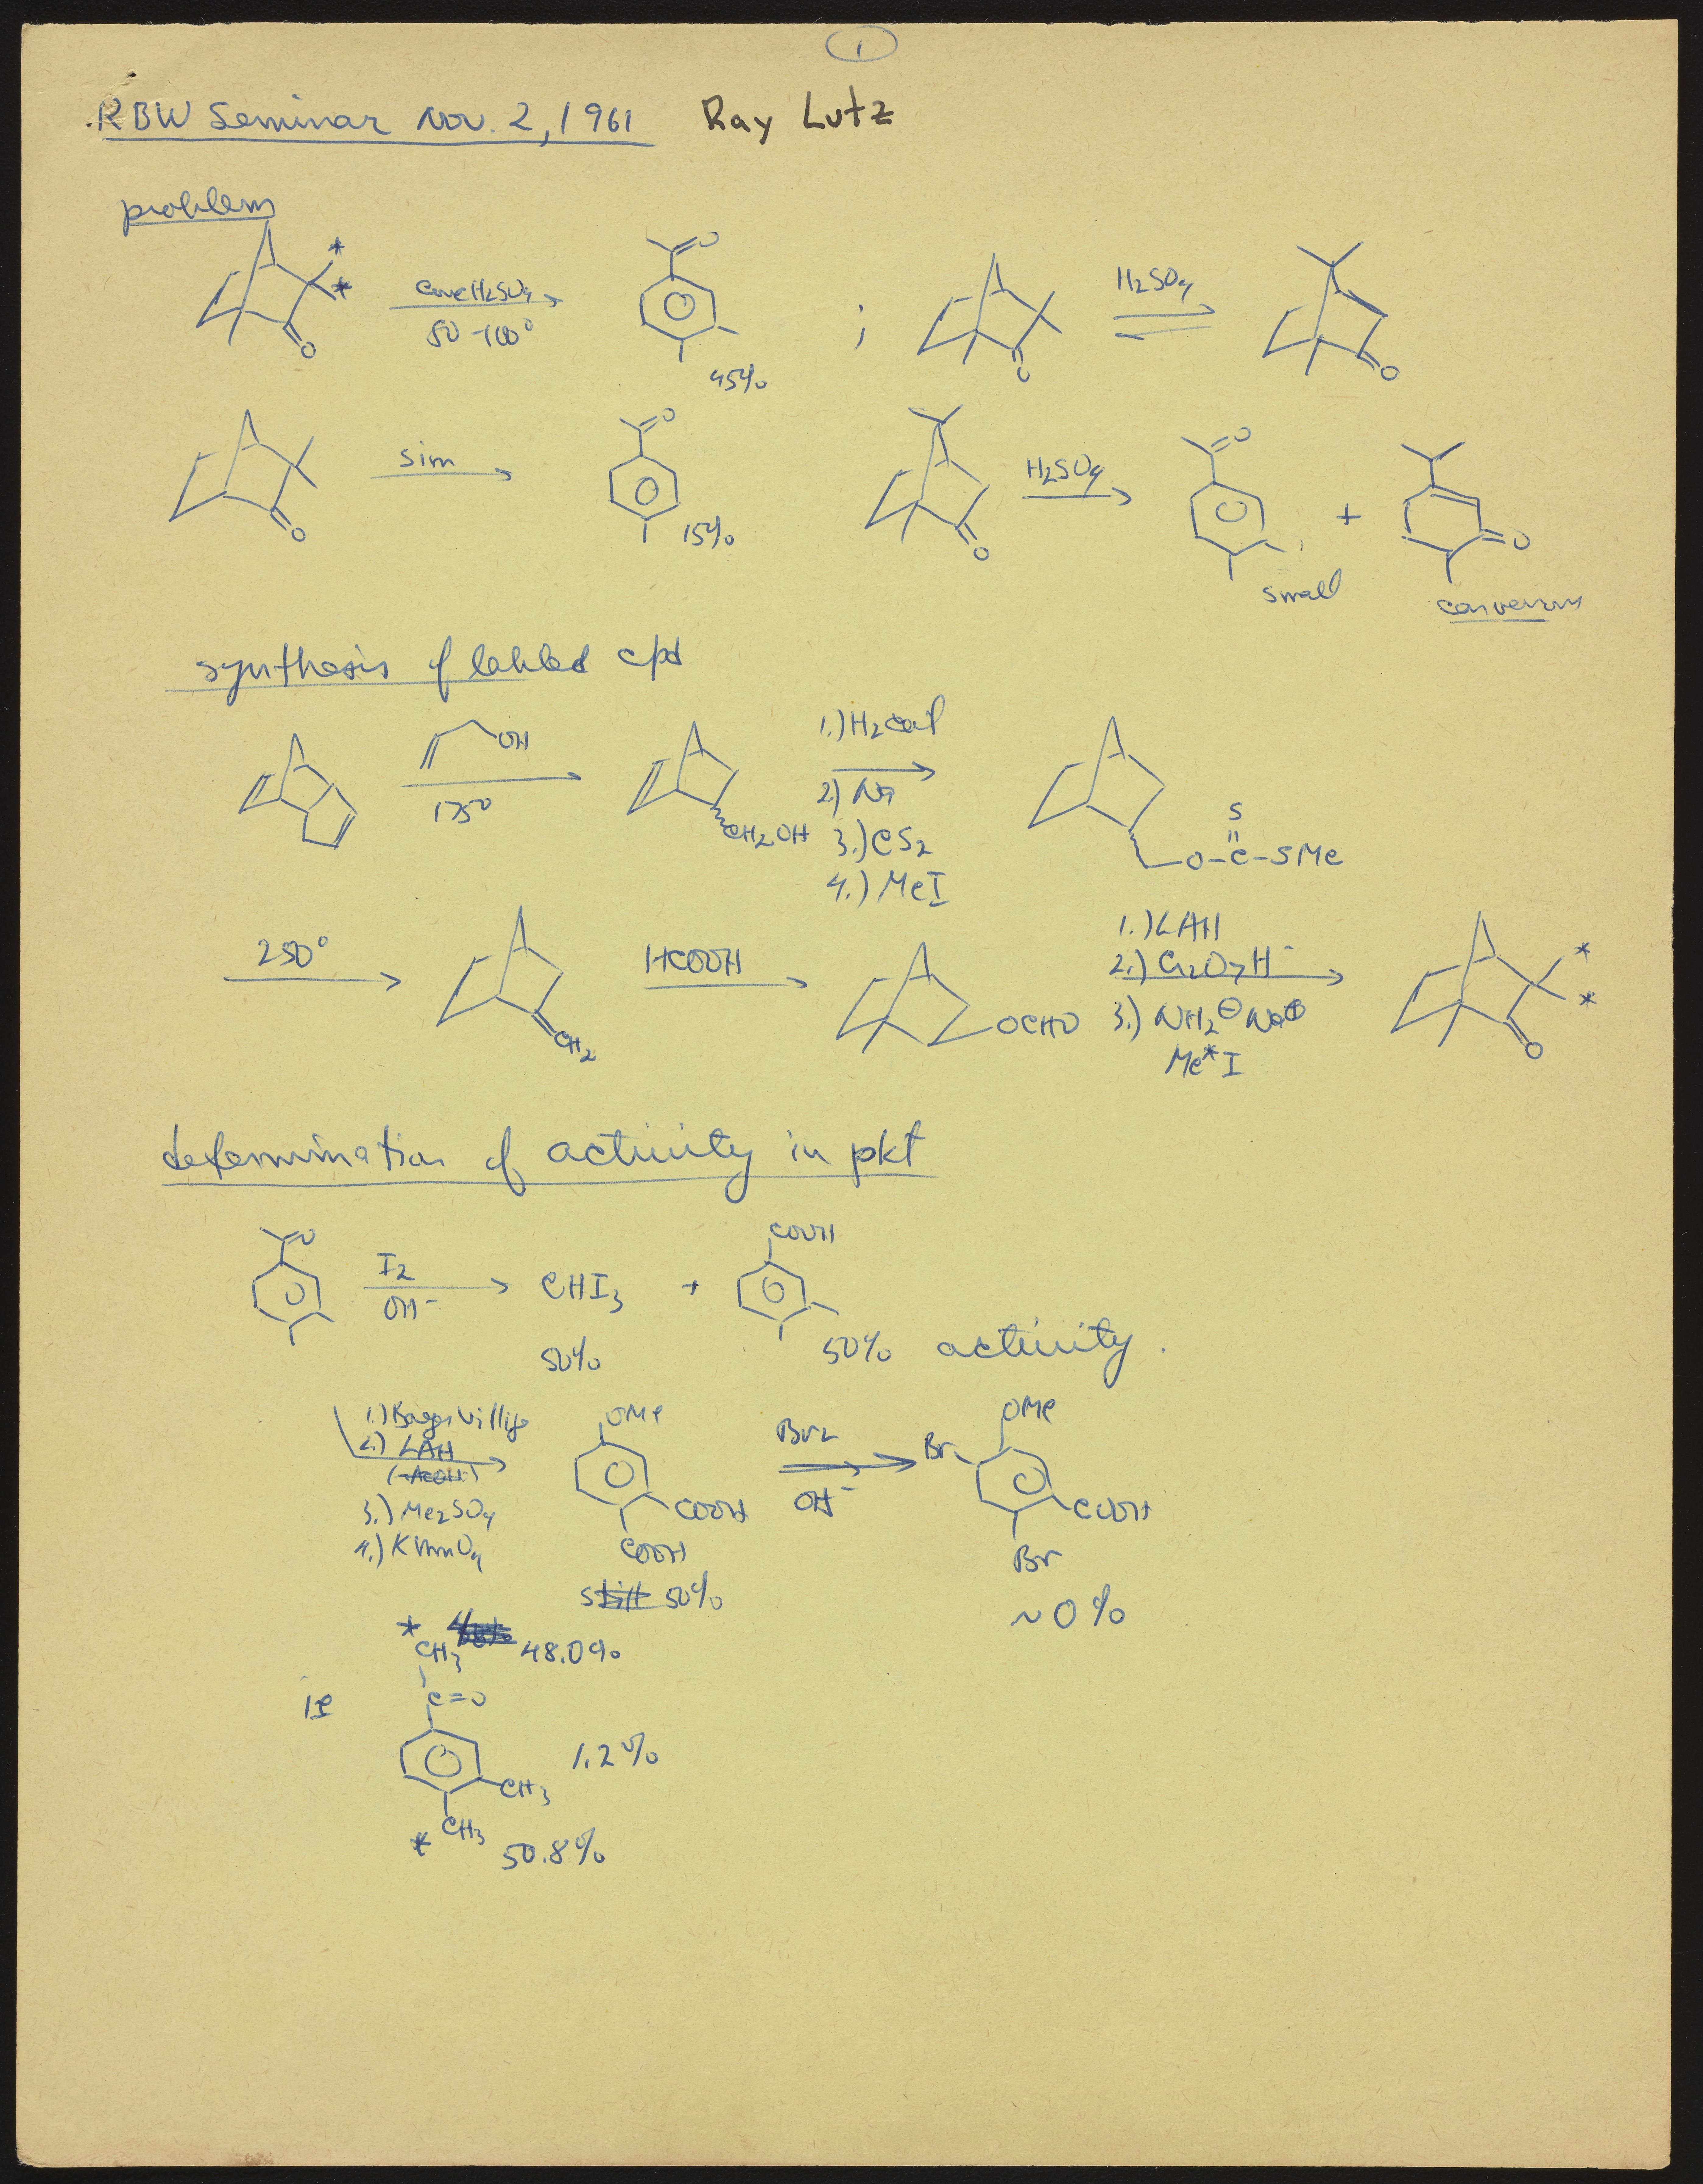 1
RBW Seminar Nov. 2, 1961 Ray Lutz
problem
* * conc H2SO4 50-100° O 45% ; O H2SO4 O
O sim O 15% O H2SO4 O small + O
synthesis of labled cpd
OH 175° CH2OH 1.) H2 cat 2.) Na 3.) CS2 4.) MeI O-C-SMe S
250° CH2 HCOOH OCHO 1.) LAH 2.) Cr2O7H- 3.) NH2⊖ Na⊕ Me*I * * O
determination of activity in pkt
O I2 OH- CHI3 + COOH
50% 50% activity.
1.) Baeyer Villiger
2.) LAH
(-AcOH)
3.) Me2SO4
4.) KMnO4
OMe COOH COOH
Br2 OH-
OMe Br COOH Br
still 50% ~0%
* CH3 48.0%
ie C=O
1.2%
CH3
* CH3 50.8%